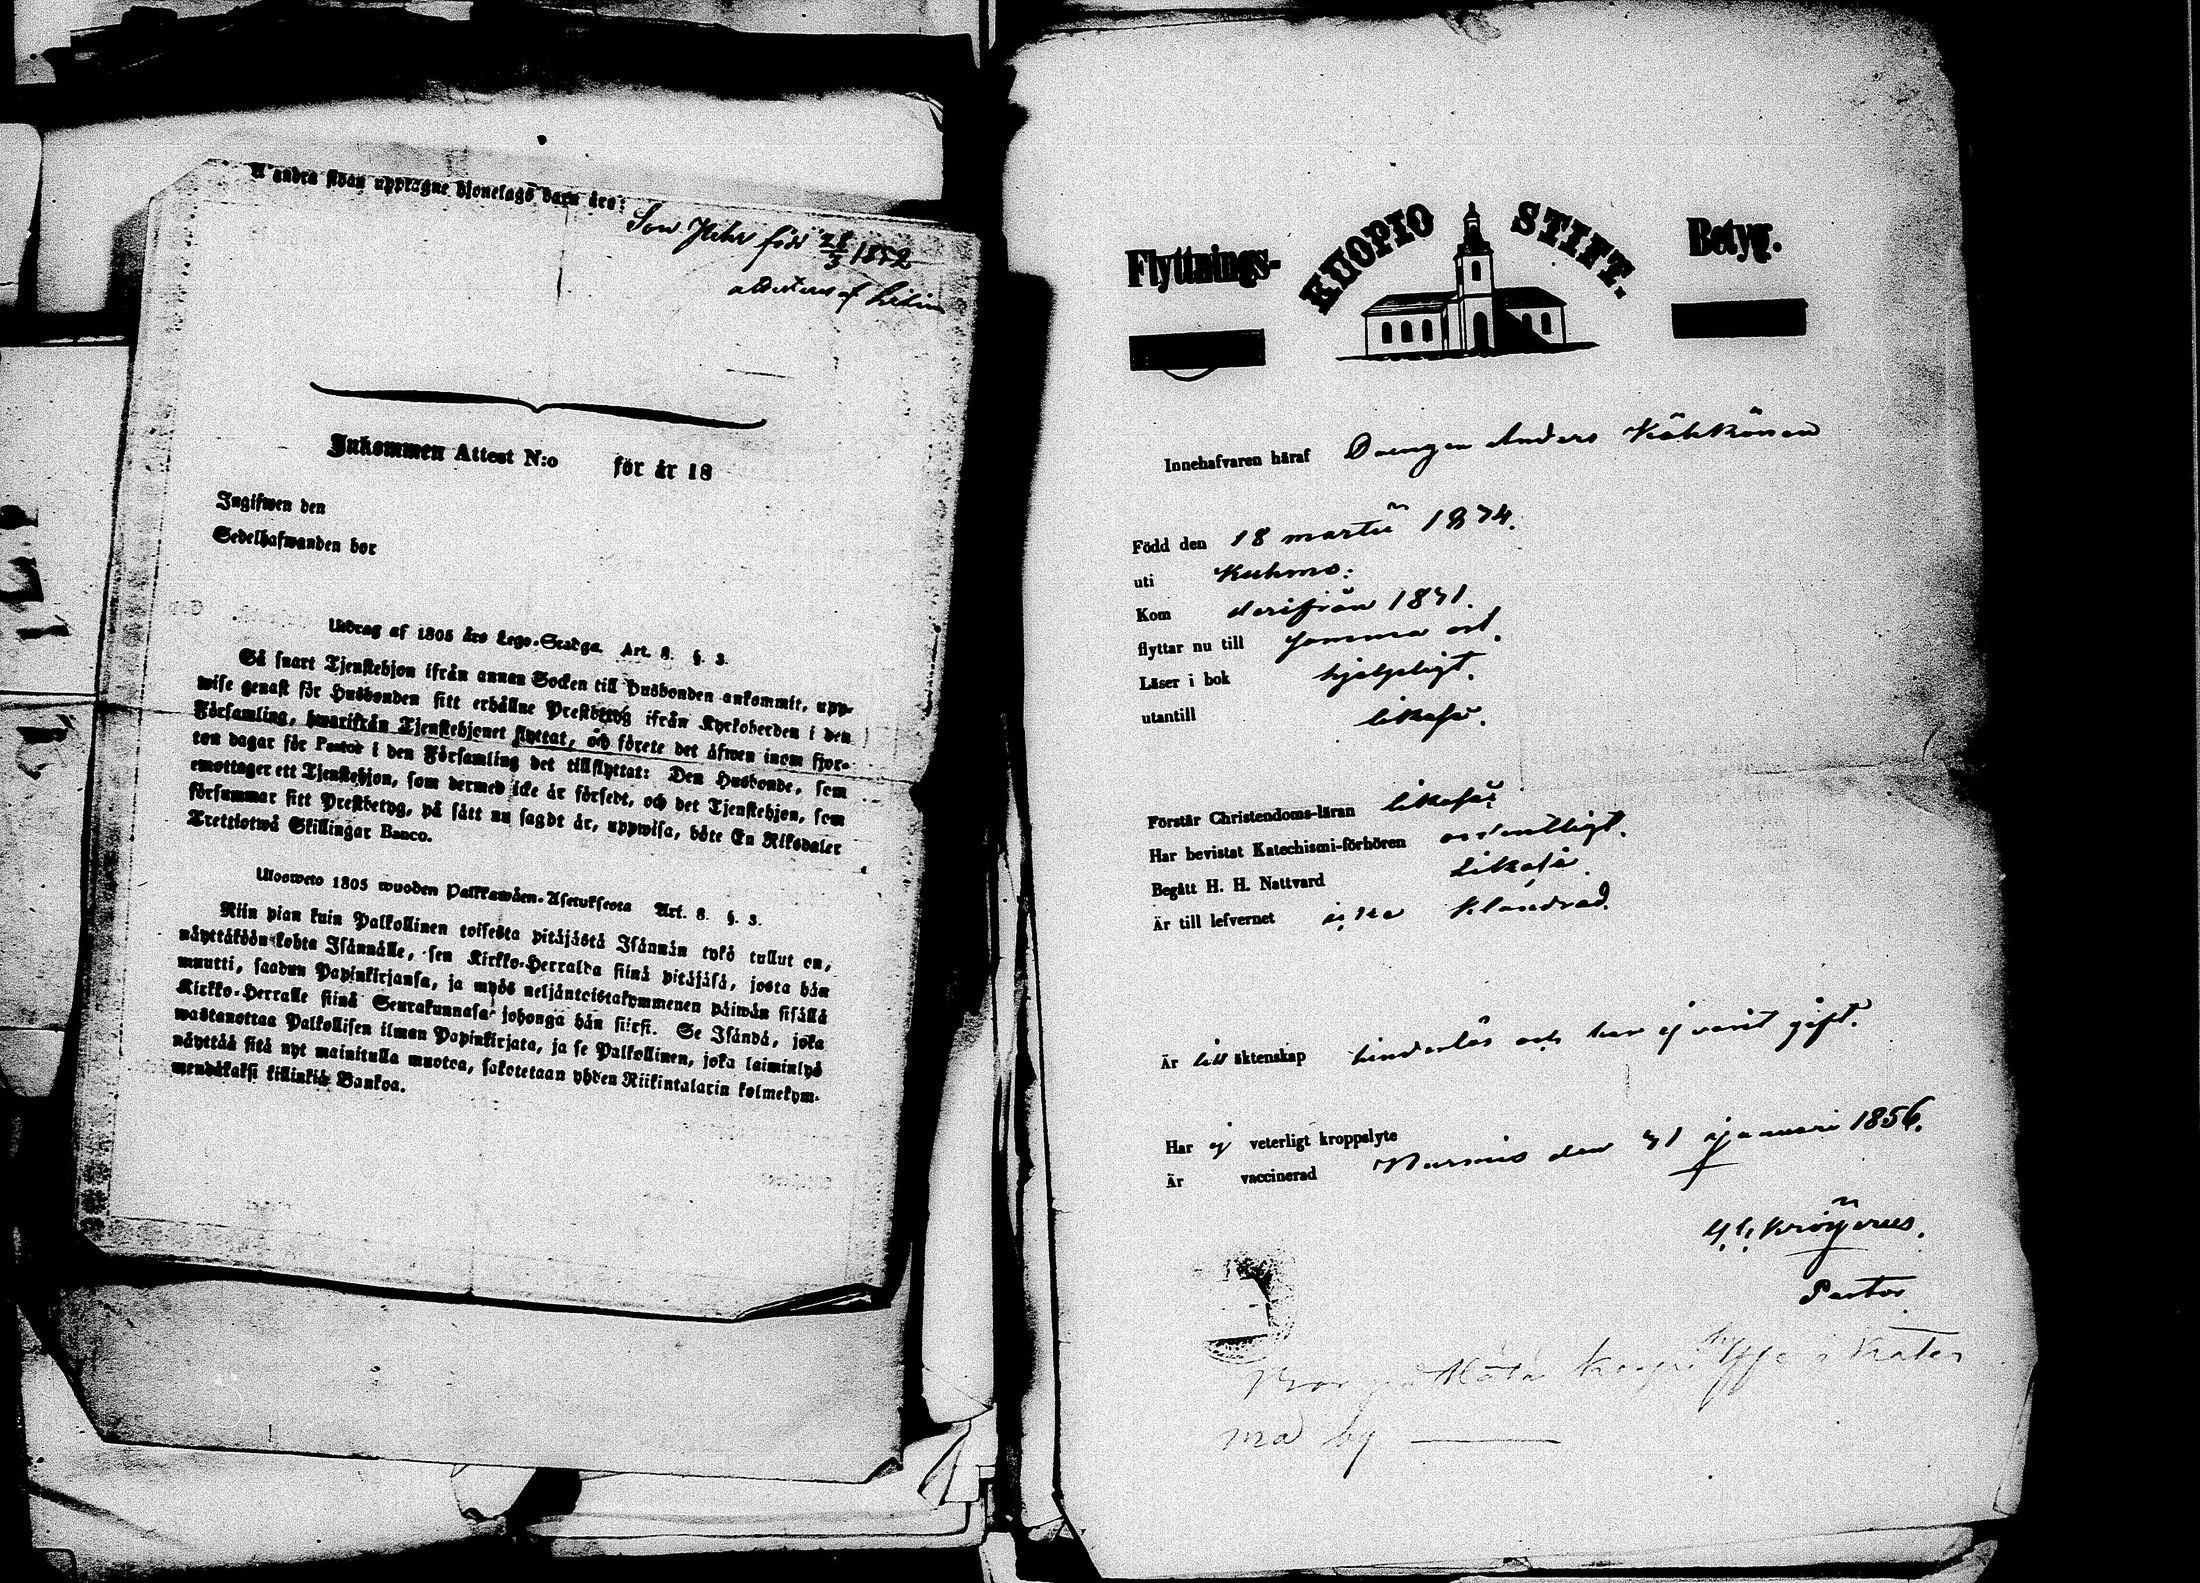 Å andra sidan upptagne hjonelags barn äro:
Son Petter född 28/3 1852
attesteras af
Inkommen Attest N:o för år 18
Ingifwen den
Sedelhafwanden bor
Utdrag af 1805 års Lego-Stadga. Art. 8. §. 3.
Så snart Tjenstehjon ifrån annan Socken till Husbonden ankommit, upp-
wise genast för Husbonden sitt erhållne Prestbetyg ifrån Kyrkoherden i den
Församling, hwarifrån Tjenstehjonet flyttat, och förete det äfwen inom fjor-
ton dagar för Pastor i den Församling det tillflyttat: Den Husbonde, som
emottager ett Tjenstehjon, som dermed icke är försedt, och det Tjenstehjon, som
försummar sitt Prestbetyg, på sätt nu sagdt är, uppwisa, böte En Riksdaler
Trettiotwå Skillingar Banco.
Ulosweto 1805 wuoden Palkkawäen-Asetuksesta Art. 8. §. 3.
Niin pian kuin Palkollinen toisesta pitäjästä Isännän tykö tullut on,
näyttäköön kohta Isännälle, sen Kirkko-Herralda siinä pitäjäsä, josta hän
muutti, saadun Papinkirjansa, ja myös neljäntoistakymmenen päiwän sisällä
Kirkko-Herralle siinä Seurakunnasa johonga hän siirsi. Se Isändä, joka
wastanottaa Palkollisen ilman Papinkirjata, ja se Palkollinen, joka laiminlyö
näyttää sitä nyt mainitulla muotoa, sakotetaan yhden Riikintalarin kolmekym-
mendäkaksi killinkiä Bankoa.
Flyttnings- KUOPIO STIFT. Betyg.
Innehafvaren häraf Drengen Anders Kähkönen
Född den 18 martii 1834.
uti Kuhmo.
Kom derifrån 1851.
flyttar nu till samma ort.
Läser i bok hjelpligt.
utantill likaså.
Förstår Christendoms-läran likaså.
Har bevistat Katechismi-förhören ordentligt.
Begått H. H. Nattvard likaså.
Är till lefvernet icke klandrad.
Är till äktenskap hinderlös och har ej varit gift.
Har ej veterligt kroppslyte
Är vaccinerad Nurmis den 31 januari 1856.
Krögerus.
Pastor
by